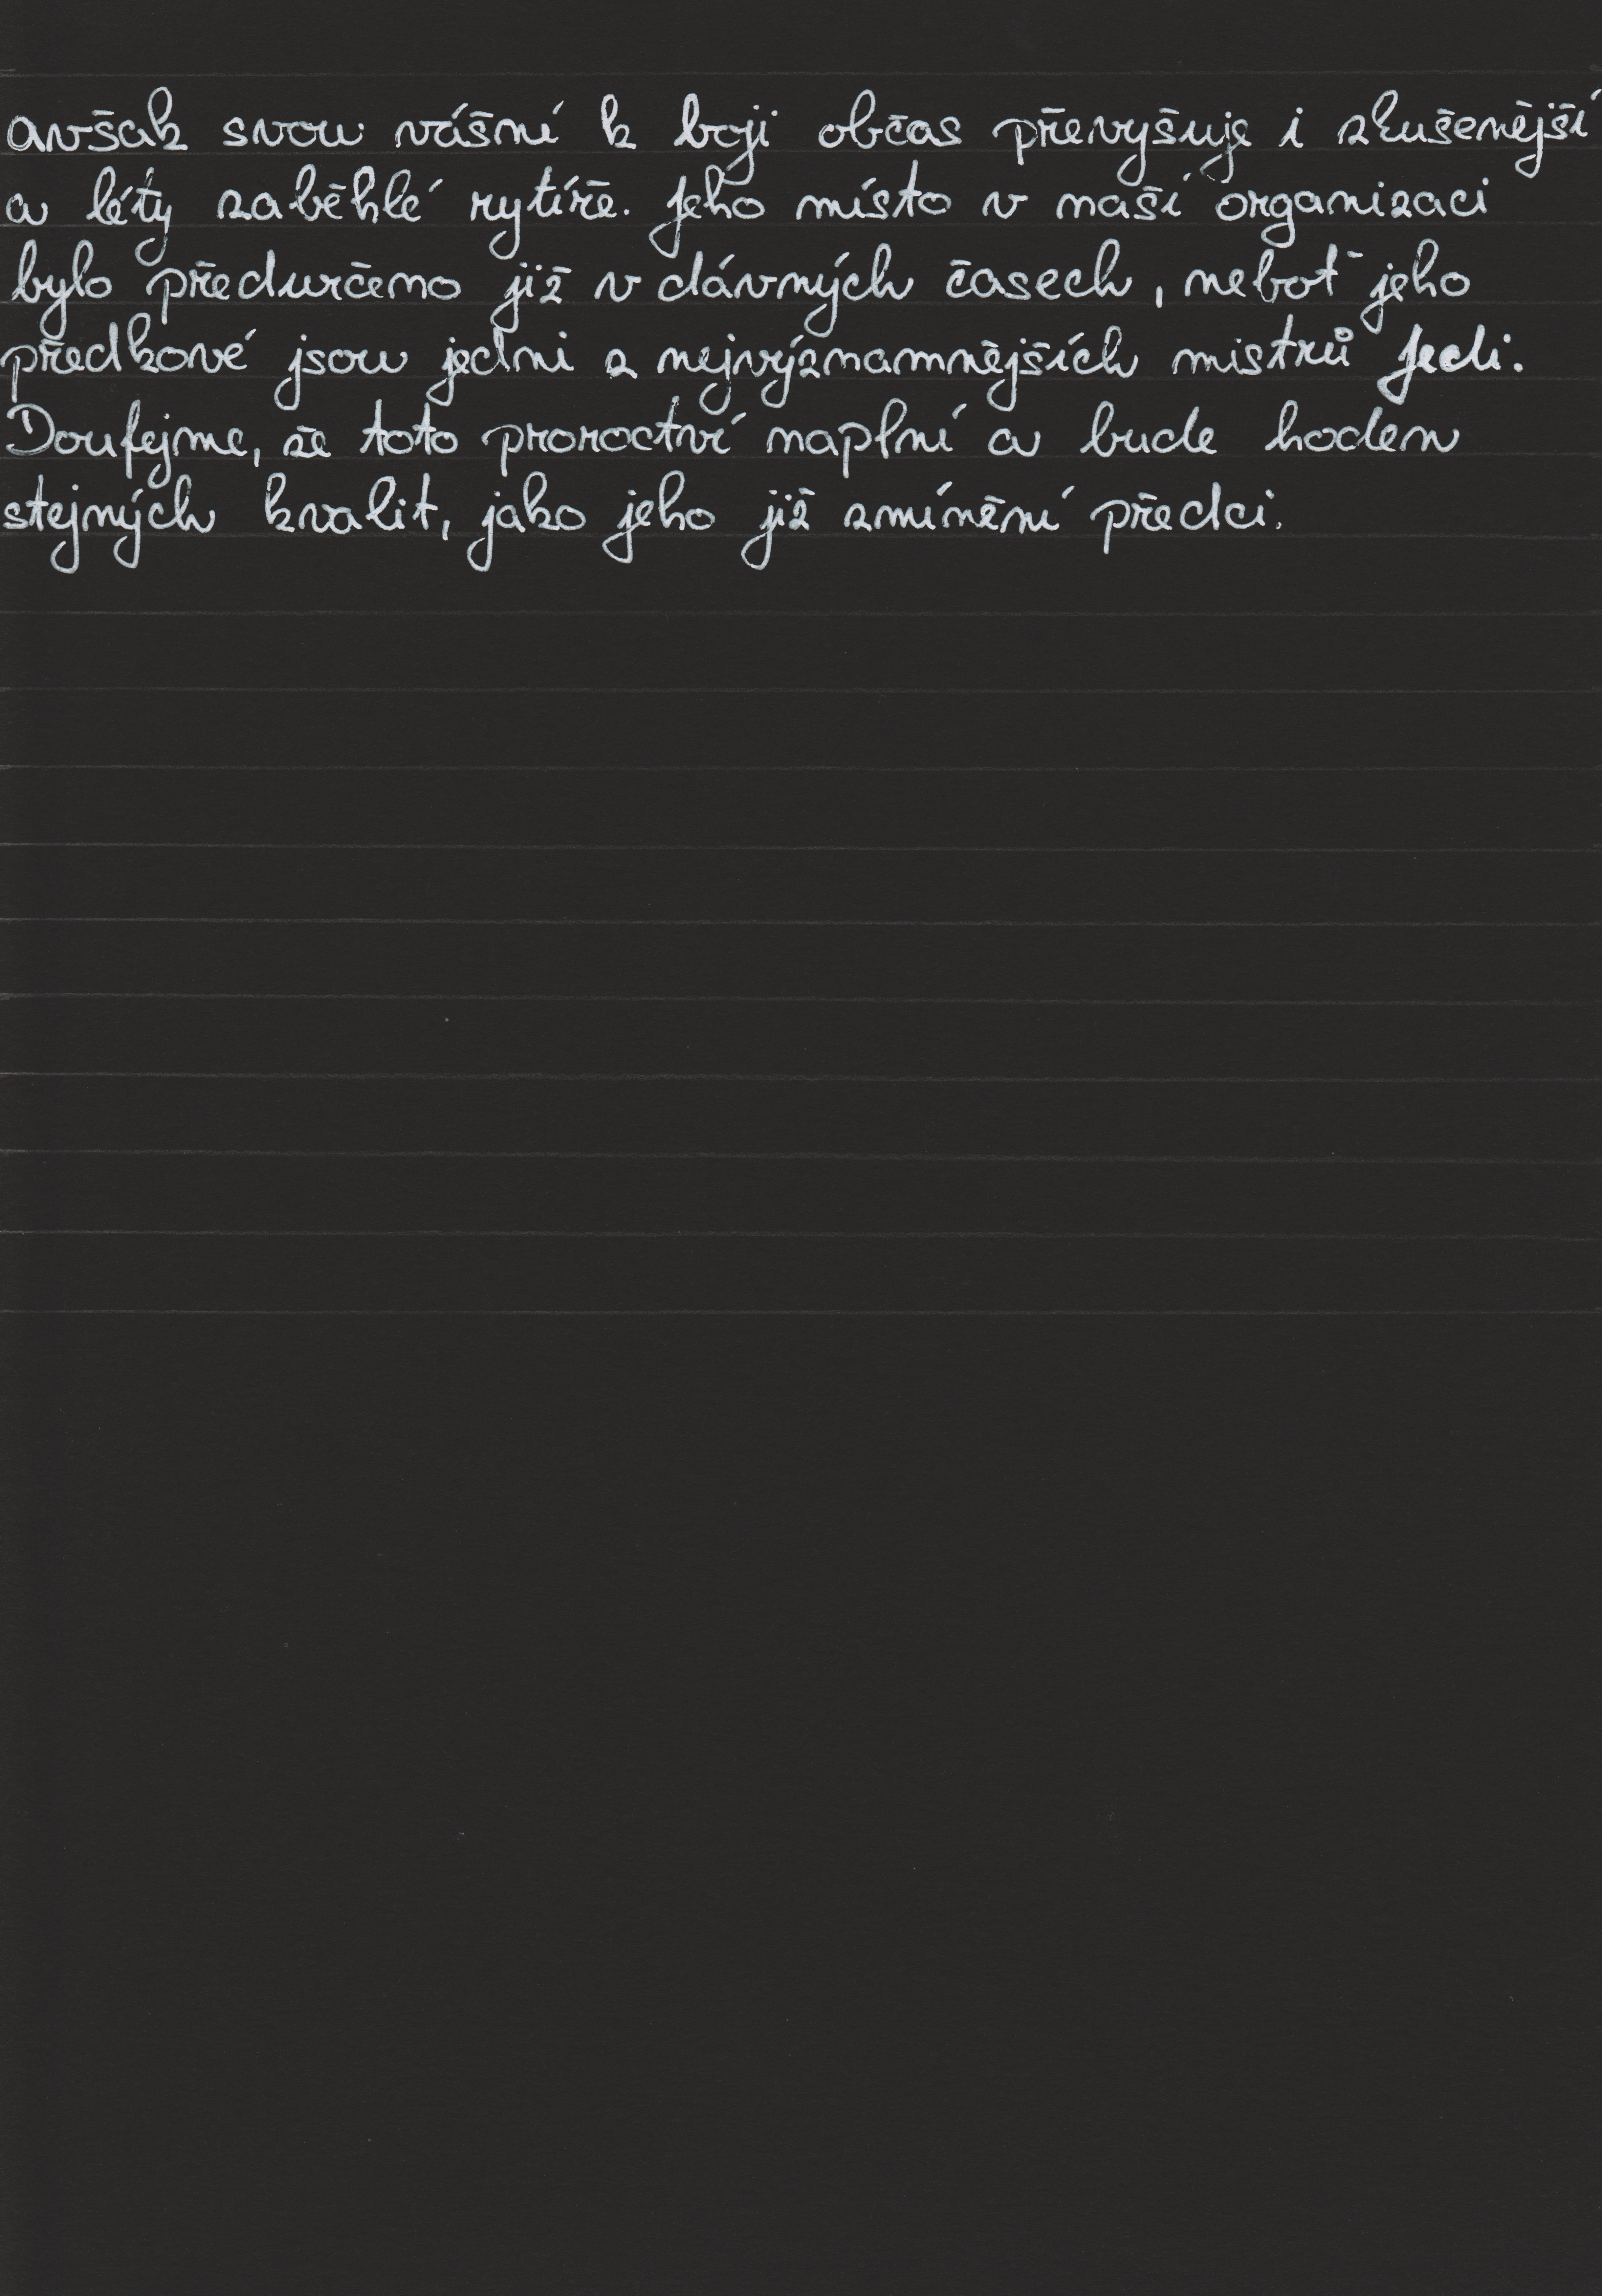 avšak svou vášní k boji občas převyšuje i zkušenější
a léty zaběhlé rytíře. Jeho místo v naší organizaci
bylo předurčeno již v dávných časech, neboť jeho
předkové jsou jedni z nejvýznamnějších mistrů Jedi.
Doufejme, že toto proroctví naplní a bude hoden
stejných kvalit, jako jeho již zmínění předci.